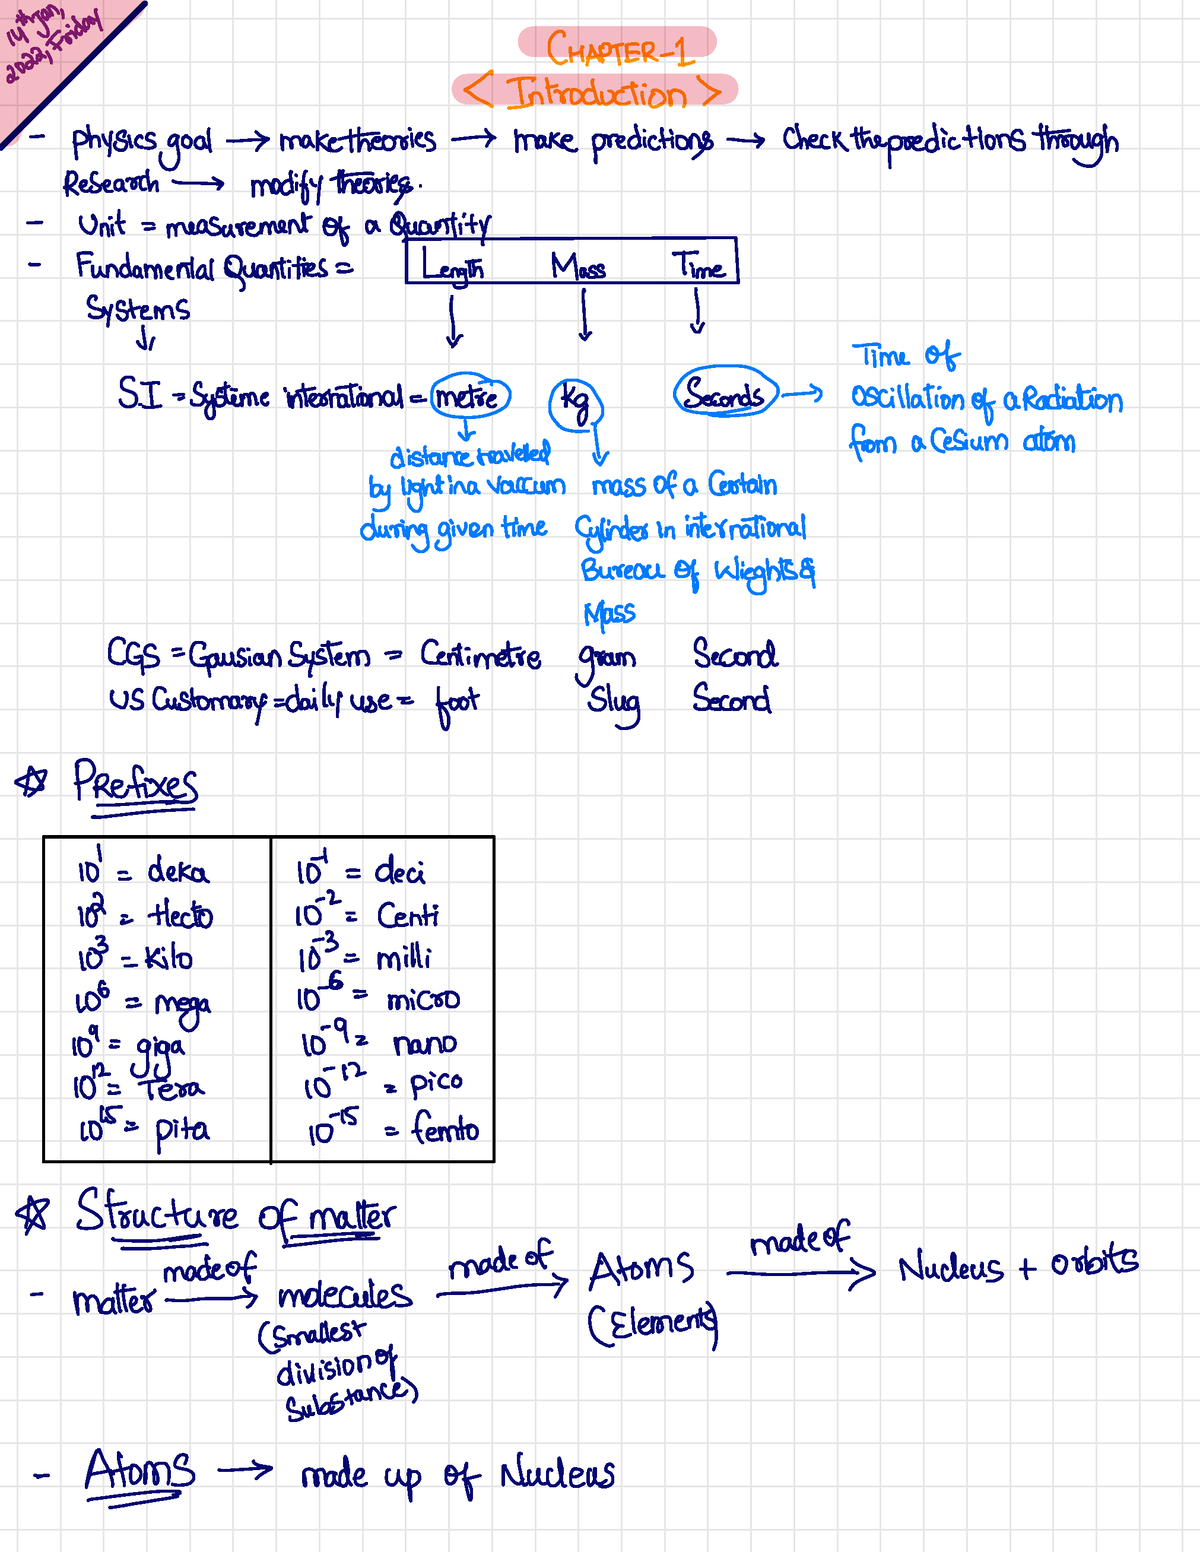 14th Jan,
2022, Friday
CHAPTER-1
< Introduction >
- Physics goal → make theories → make predictions → Check the predictions through
Research → modify theories.
- Unit = measurement of a Quantity
- Fundamental Quantities = Length Mass Time
Systems
S.I = Systéme international = metre kg Seconds → Time of
Oscillation of a Radiation
from a Cesium atom
distance travelled
by light in a vaccum
during given time
mass of a Certain
Cylinder in international
Bureau of Wieghts &
Mass
CGS = Gausian System = Centimetre gram Second
US Customary = daily use = foot Slug Second
☆ Prefixes
10^1 = deka 10^-1 = deci
10^2 = Hecto 10^-2 = Centi
10^3 = Kilo 10^-3 = milli
10^6 = mega 10^-6 = micro
10^9 = giga 10^-9 = nano
10^12 = Tera 10^-12 = pico
10^15 = pita 10^-15 = femto
☆ Structure of matter
- matter made of → molecules made of → Atoms made of → Nucleus + orbits
(Smallest
division of
Substance)
(Elements)
- Atoms → made up of Nucleus